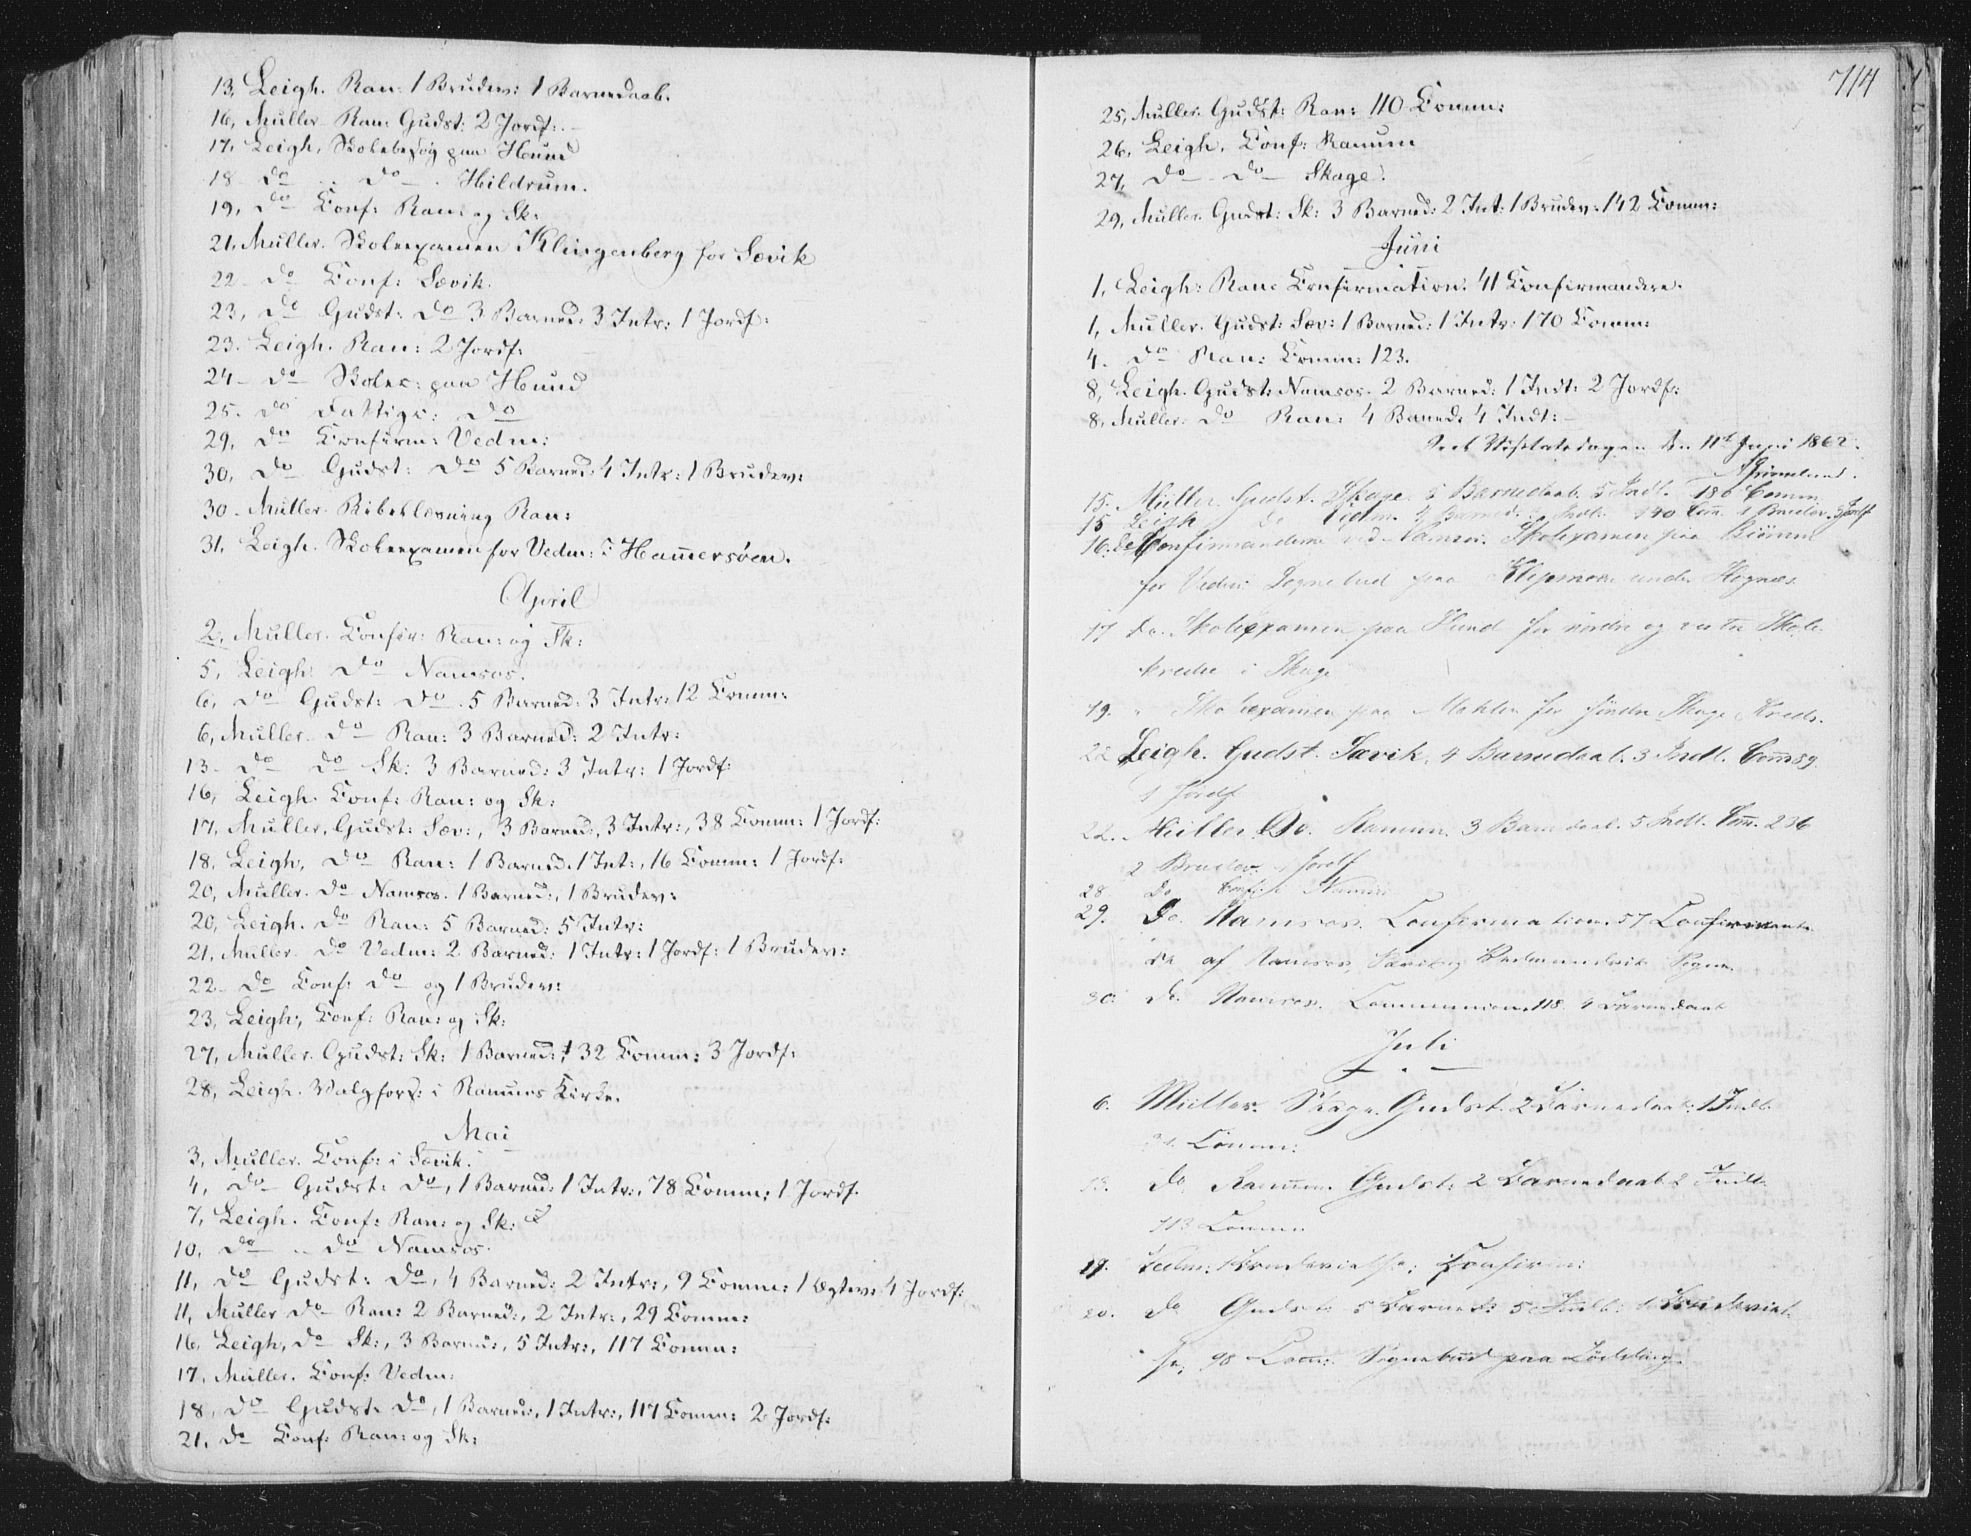 13, Leigh. Ran: 1 Brudev: 1 Barnedaab.
16, Müller Ran: Gudst: 2 Jordf:
17, Leigh, Skolebesøg paa Hund
18 - do .. do - . Hildrum.
19, do Conf: Ran: og Sk:
21, Müller. Skoleexamen Klingenberg for Sævik
22 - do Conf: Sævik.
23, do Gudst: do 3 Barned: 3 Intr: 1 Jordf:
23. Leigh. Ran: 2 Jordf:
24 - do Skolec: paa Hund
25. do Fattigc: do
29, do Confirm: Vedm:
30, do Gudst: do 5 Barned: 4 Intr: 1 Brudev:
30 - Müller. Bibellæsning Ran:
31, Leigh. Skoleexamen for Vedm: i Hamersøen.
April
2, Müller. Confir: Ran: og Sk:
5, Leigh: do Namsos.
6, do Gudst: do . 5 Barned: 3 Intr: 12 Comm:
6, Müller - do Ran: 3 Barned: 2 Intr:
13 - do do Sk: 3 Barned: 3 Intr: 1 Jordf:
16, Leigh. Conf: Ran: og Sk:
17, Müller, Gudst: Sæv:, 3 Barned:, 3 Intr:, 38 Comm: 1 Jordf:
18, Leigh, do Ran: 1 Barned. 1 Int:, 16 Comm: 1 Jordf:
20, Müller. do Namsos. 1 Barned:, 1 Brudev:
20, Leigh. do Ran: 5 Barned: 5 Intr:
21, Müller. do Vedm: 2 Barned: 1 Intr: 1 Jordf: 1 Brudev:
22 - do Conf: do og 1 Brudev:
23, Leigh, Conf: Ran: og Sk:
27, Müller. Gudst: Sk: 1 Barned: 132 Comm: 3 Jordf:
28, Leigh. Valgforr: i Ranums Kirke.
Mai
3, Müller. Conf: i Sævik.
4, do - Gudst: do, 1 Barned: 1 Intr:, 78 Comm: 1 Jordf.
7, Leigh. Conf: Ran: og Sk:
10, do .. do Namsos.
11, do Gudst: do, 4 Barned: 2 Intr:, 9 Comm: 1 Ægtev: 4 Jordf:
11, Müller do - Ran: 2 Barned:, 2 Intr:, 29 Comm:
16, Leigh, do Sk:, 3 Barned:, 5 Intr:, 117 Comm:
17, Müller. Conf: Vedm:
18, do Gudst. do, 1 Barned:, 1 Intr:, 117 Comm: 2 Jordf:
21, do Conf: Ran: og Sk:
714
25, Müller. Gudst: Ran: 110 Comm:
26, Leigh. Conf: Ranum
27, do - do - Skage.
29, Müller. Gudst: Sk: 3 Barned: 2 Int: 1 Brudev: 142 Comm:
Juni
1, Leigh: Ran: Confirmation. 41 Confirmandere.
1, Müller. Gudst: Sæv: 1 Barned: 1 Intr: 170 Comm:
4. do Ran: Comm: 123.
8, Leigh. Gudst: Namsos. 2 Barned: 1 Indt: 2 Jordf:
8, Müller: do Ran: 4 Baned: 4 Indt: -
Seet Visitatsdagen den 11te Juni 1862.
15. Müller Gudst. Skage. 5 Barnedaab. 5 Indl. 186 Comm
15 Leigh do Vedm. Barned. Indl: 140 Com. 1 Brudev. Jordf
16. do Confirmanderne ved Namsos. Skolexamen paa
for Vedm: Sognebud paa under Høgnæs.
17 do. Skolexamen paa Hund for nordre og vestre Skole
kredse i Skage
19. " Skolexamen paa for søndre Skage Kreds.
22 Leigh. Gudst. Sævik, 4 Barnedaab. 3 Indl. Com 89.
1 Jordf
22. Müller Do. Ranum. 3 Barnedaab. 5 Indl. Com. 236
2 Brudev. Jordf
28 Do Conf:
29. Do. Namsos. Confirmation. 57 Confirmante
re af Namsos, Sævik og Vedm Sogne.
30. Do. Namsos. Communion. 118. 4 Barnedaab
Juli
6. Müller. Skage. Gudst. 2 Barnedaab: 1 Indl.
Comm:
13. do. Ranum. Gudst: 2 Barnedaab 2 Indl.
113 Comm
19. Vedm: 1 Brudevielse; Confirm:
20. do Gudst: 5 Barned: 5 Indl: 1 Brudeviel
se, 98 Com: Sognebud paa